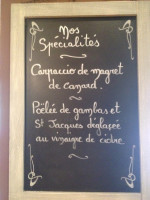 Nos
Spécialités
Carpaccio de magret
de canard.
Poêlée de gambas et
St Jacques déglaçée
au vinaigre de cidre.